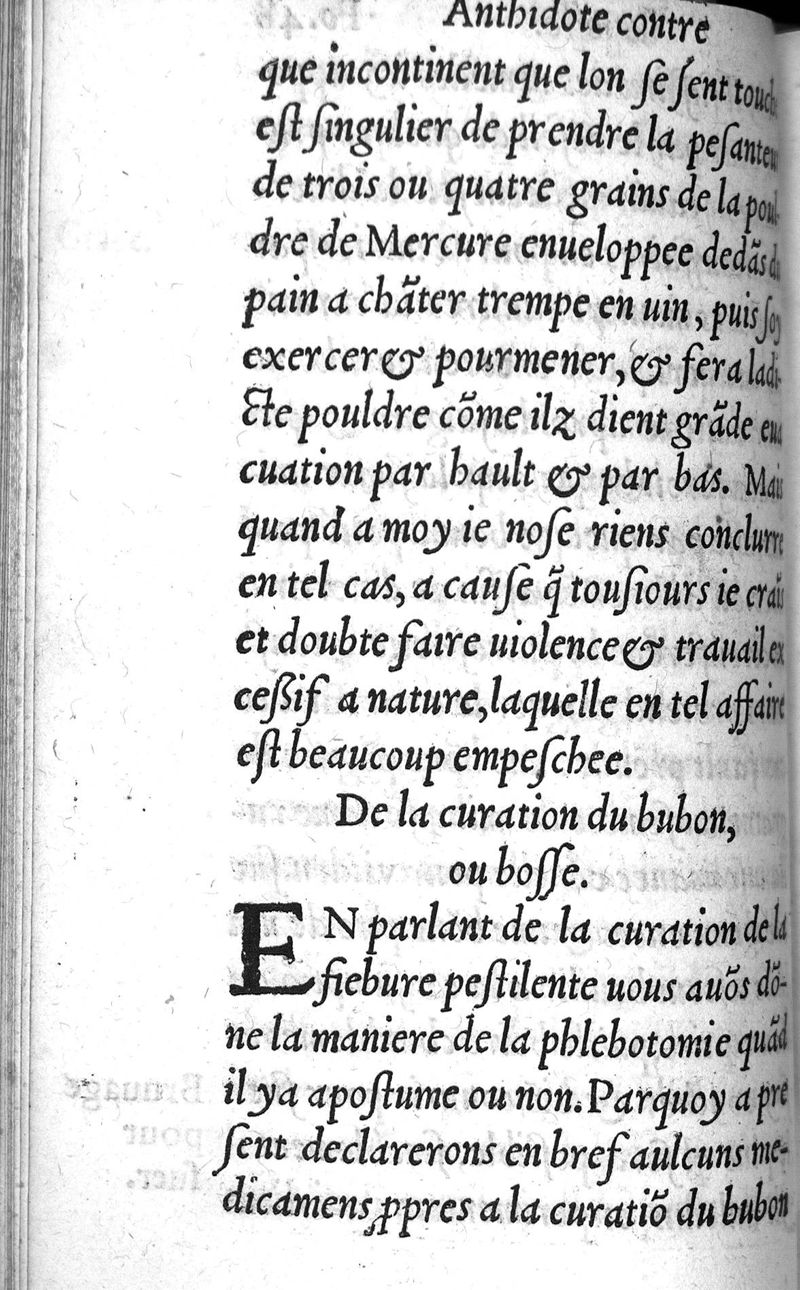 Anthidote contre
que incontinent que lon se sent touch
est singulier de prendre la pesanteu
de trois ou quatre grains de la poul
dre de Mercure enueloppee dedãs du
pain a chãter trempe en uin, puis soy
exercer & pourmener, & fera ladi-
cte pouldre cõme ilz dient grãde eua
cuation par hault & par bas. Mais
quand a moy ie nose riens conclurre
en tel cas, a cause q̃ tousiours ie crais
et doubte faire uiolence & trauail ex
cessif a nature, laquelle en tel affaire
est beaucoup empeschee.
De la curation du bubon,
ou bosse.
EN parlant de la curation de la
fiebure pestilente uous auõs dõ-
ne la maniere de la phlebotomie quãd
il ya apostume ou non. Parquoy a pre
sent declarerons en bref aulcuns me-
dicamens ꝓpres a la curatiõ du bubon